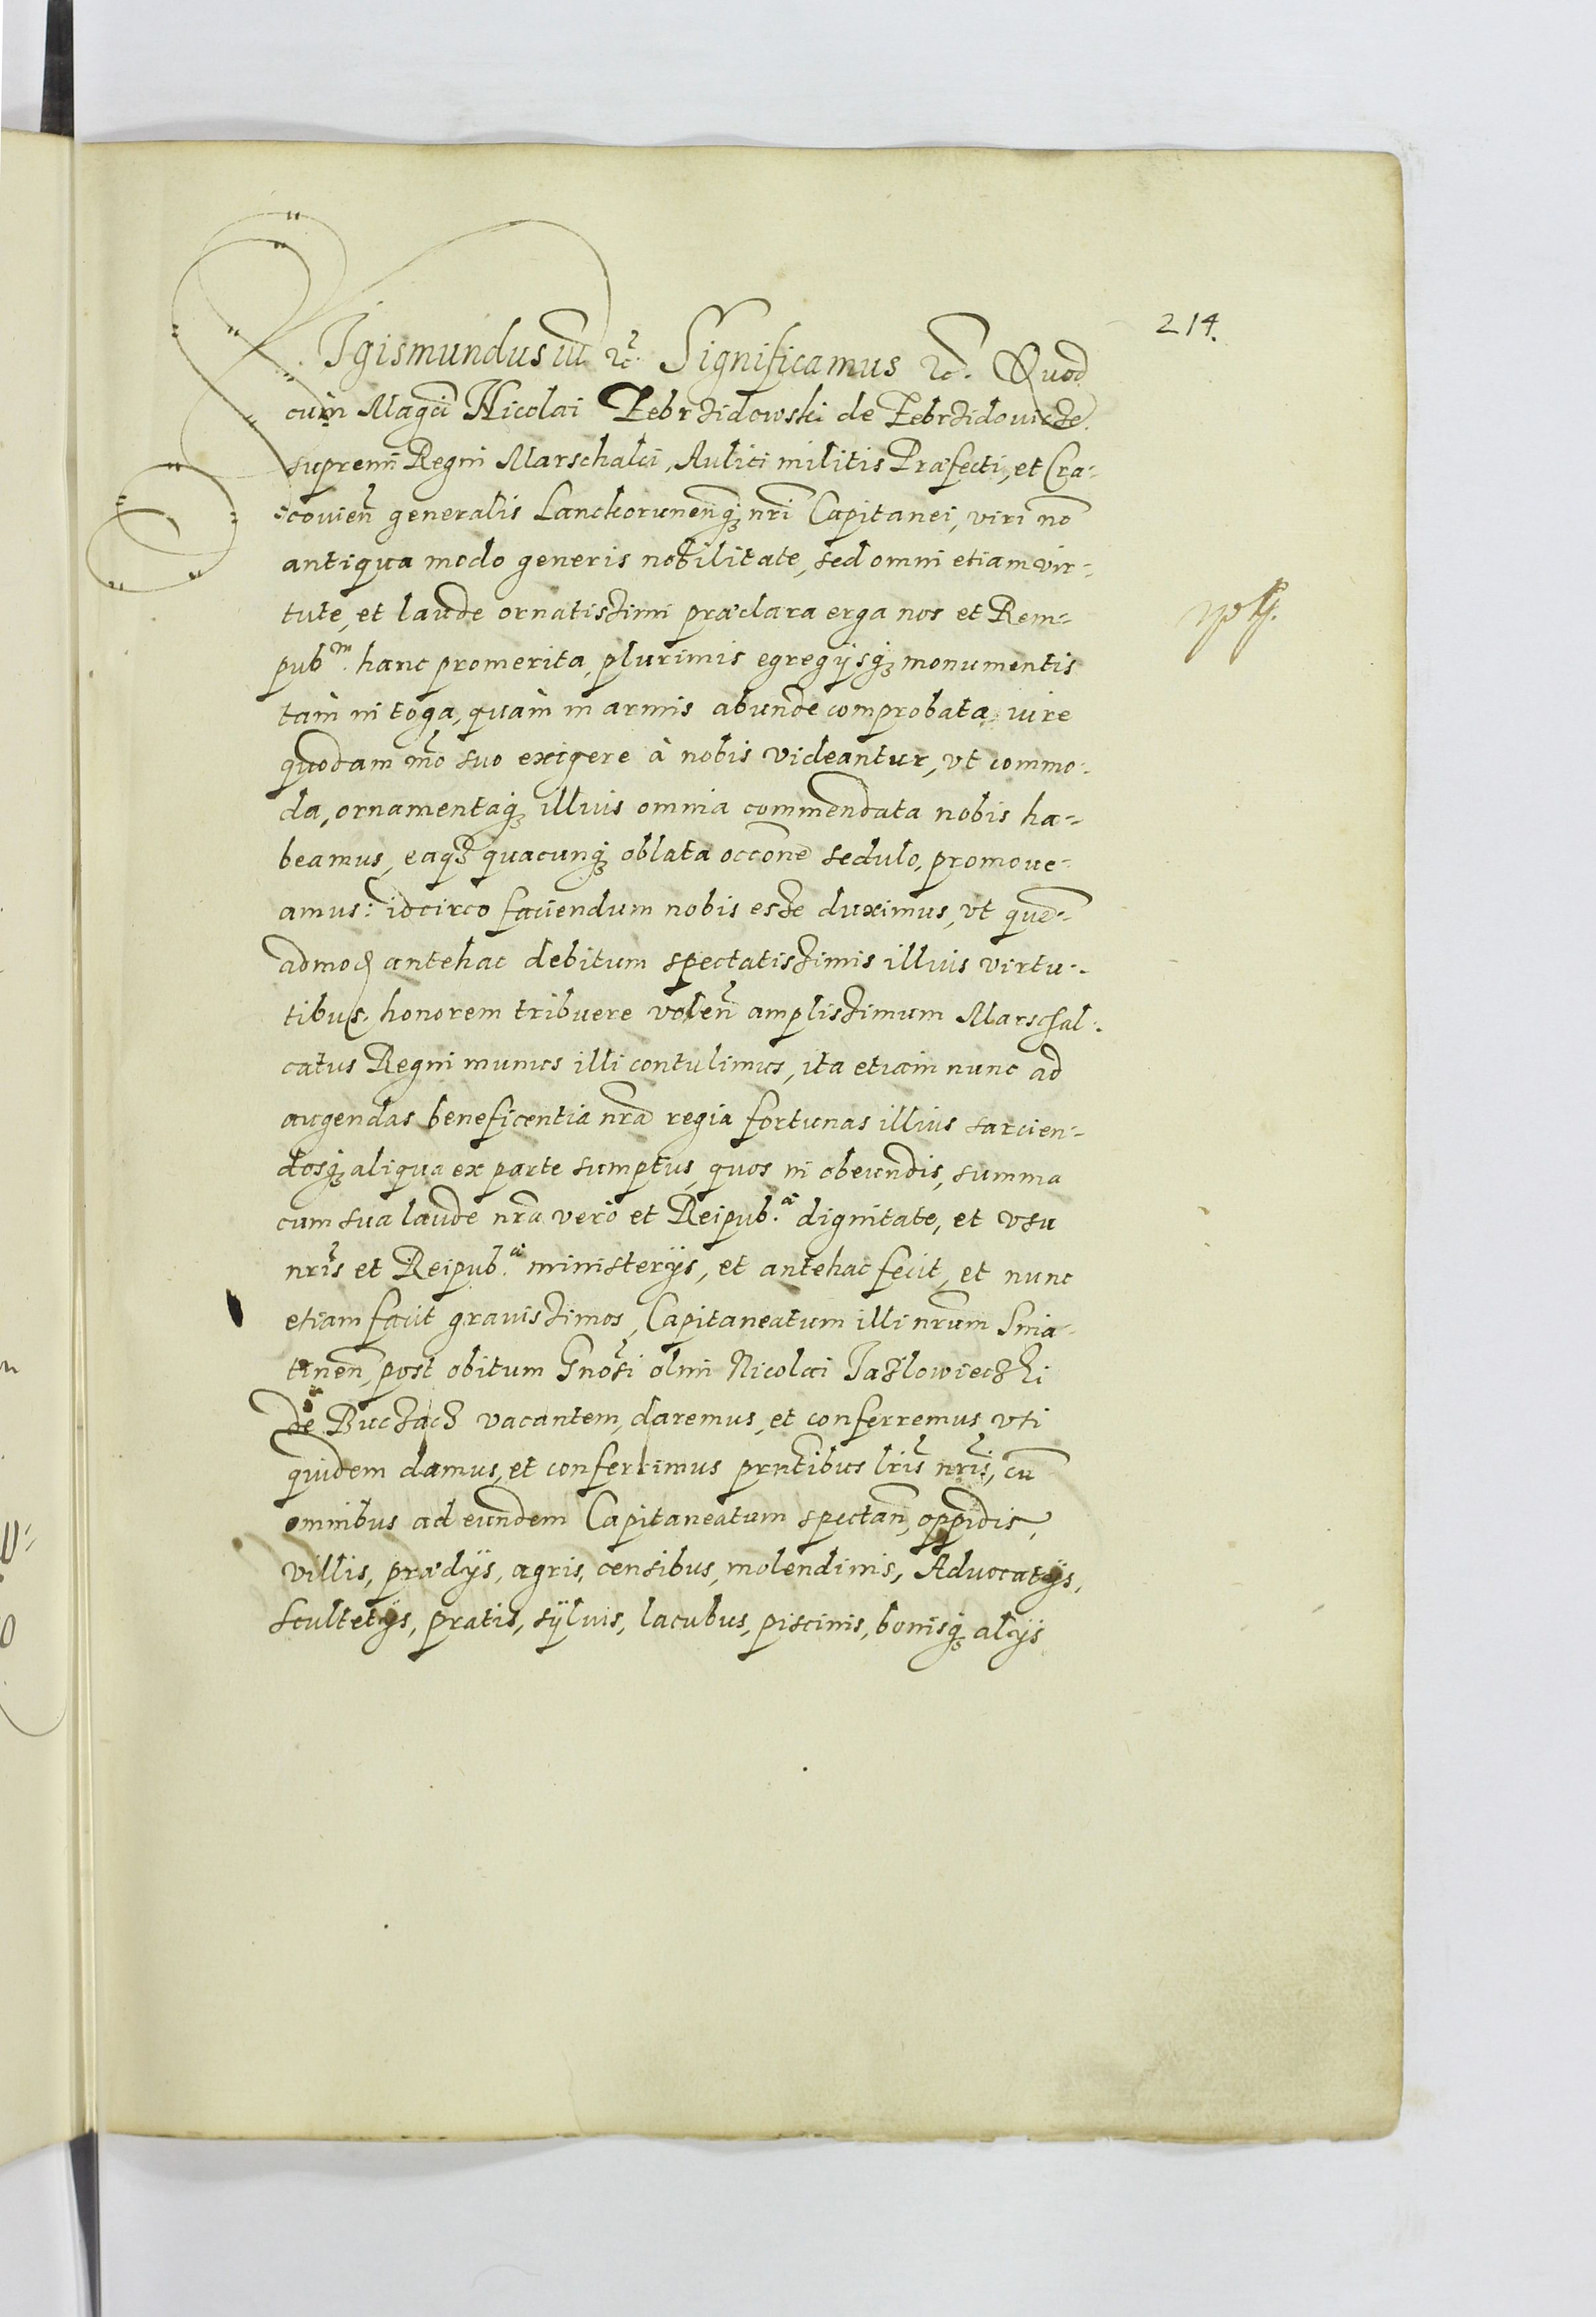 214.
Sigismundus iii etc. Significamus etc. Quod
cum Magci Nicolai Zebrzidowski de Zebrzidowicze
supremi Regni Marschalci, Aulici militis Præfecti, et Cra-
covien generalis Lanckorunenq3 nri Capitanei, viri no
antiqua modo generis nobilitate, sed omni etiam vir-
tute, et laude ornatissimi præclara erga nos et Rem-
pubm. hanc promerita, plurimis egregijsq3 monumentis
tàm in toga, quàm in armis abunde comprobata, iure
quodam mo suo exigere à nobis videantur, vt commo-
da, ornamentaq3 illius omnia commendata nobis ha-
beamus, eaq3 quacunq3 oblata occone sedulo, promoue-
amus: idcirco faciendum nobis esse duximus, vt que-
admod antehac debitum spectatissimis illius virtu-
tibus honorem tribuere volen amplissimum Marschal-
catus Regni munus illi contulimus, ita etiam nunc ad
augendas beneficentia nra regia fortunas illius sarcien-
dosq3 aliqua ex parte sumptus, quos in obeundis, summa
cum sua laude nra vero et Reipub.a dignitate, et vsu
nris et Reipub.a ministerijs, et antehac fecit, et nunc
etiam facit grauissimos, Capitaneatum illi nrum Snia-
tinen, post obitum Gnosi olim Nicolai Jazlowieczki
de Buczacz vacantem, daremus, et conferremus, vti
quidem damus, et conferimus prntibus lris nris, cu
omnibus ad eundem Capitaneatum spectan, oppidis,
villis, prædijs, agris, censibus, molendinis, Aduocatijs,
Scultetijs, pratis, sÿluis, lacubus, piscinis, bonisq3 alijs